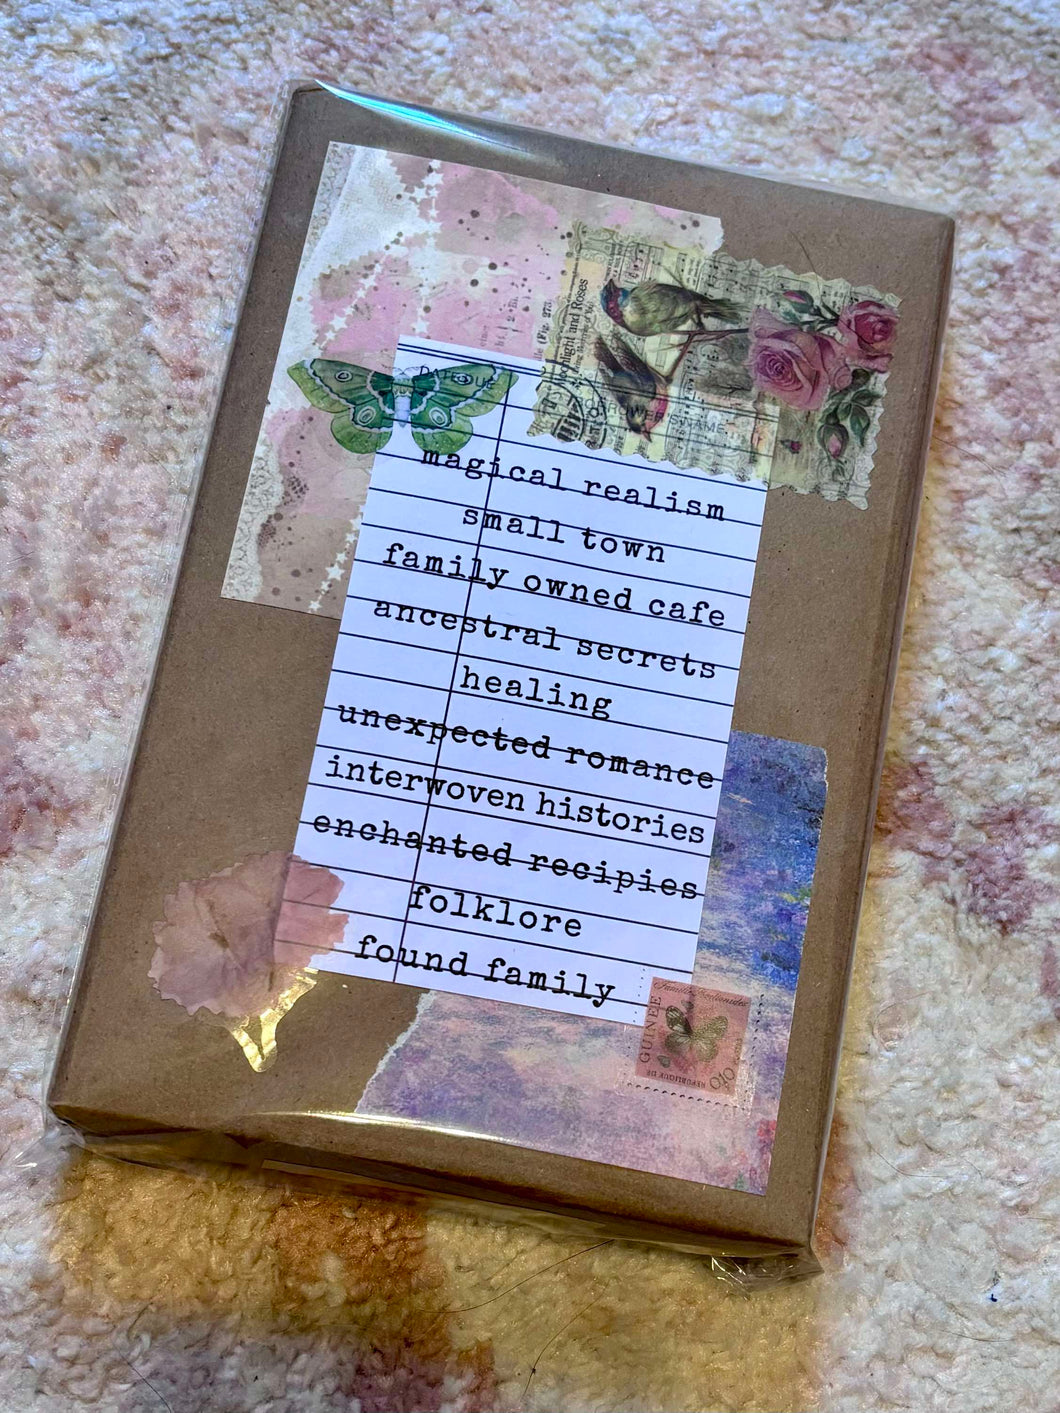 DATE DUE
BORROWER'S NAME
(Fig. 273.
Moonlight and Roses
magical realism
small town
family owned cafe
ancestral secrets
healing
unexpected romance
interwoven histories
enchanted recipies
folklore
found family
GUINEE
REPUBLIQUE DE
0f10